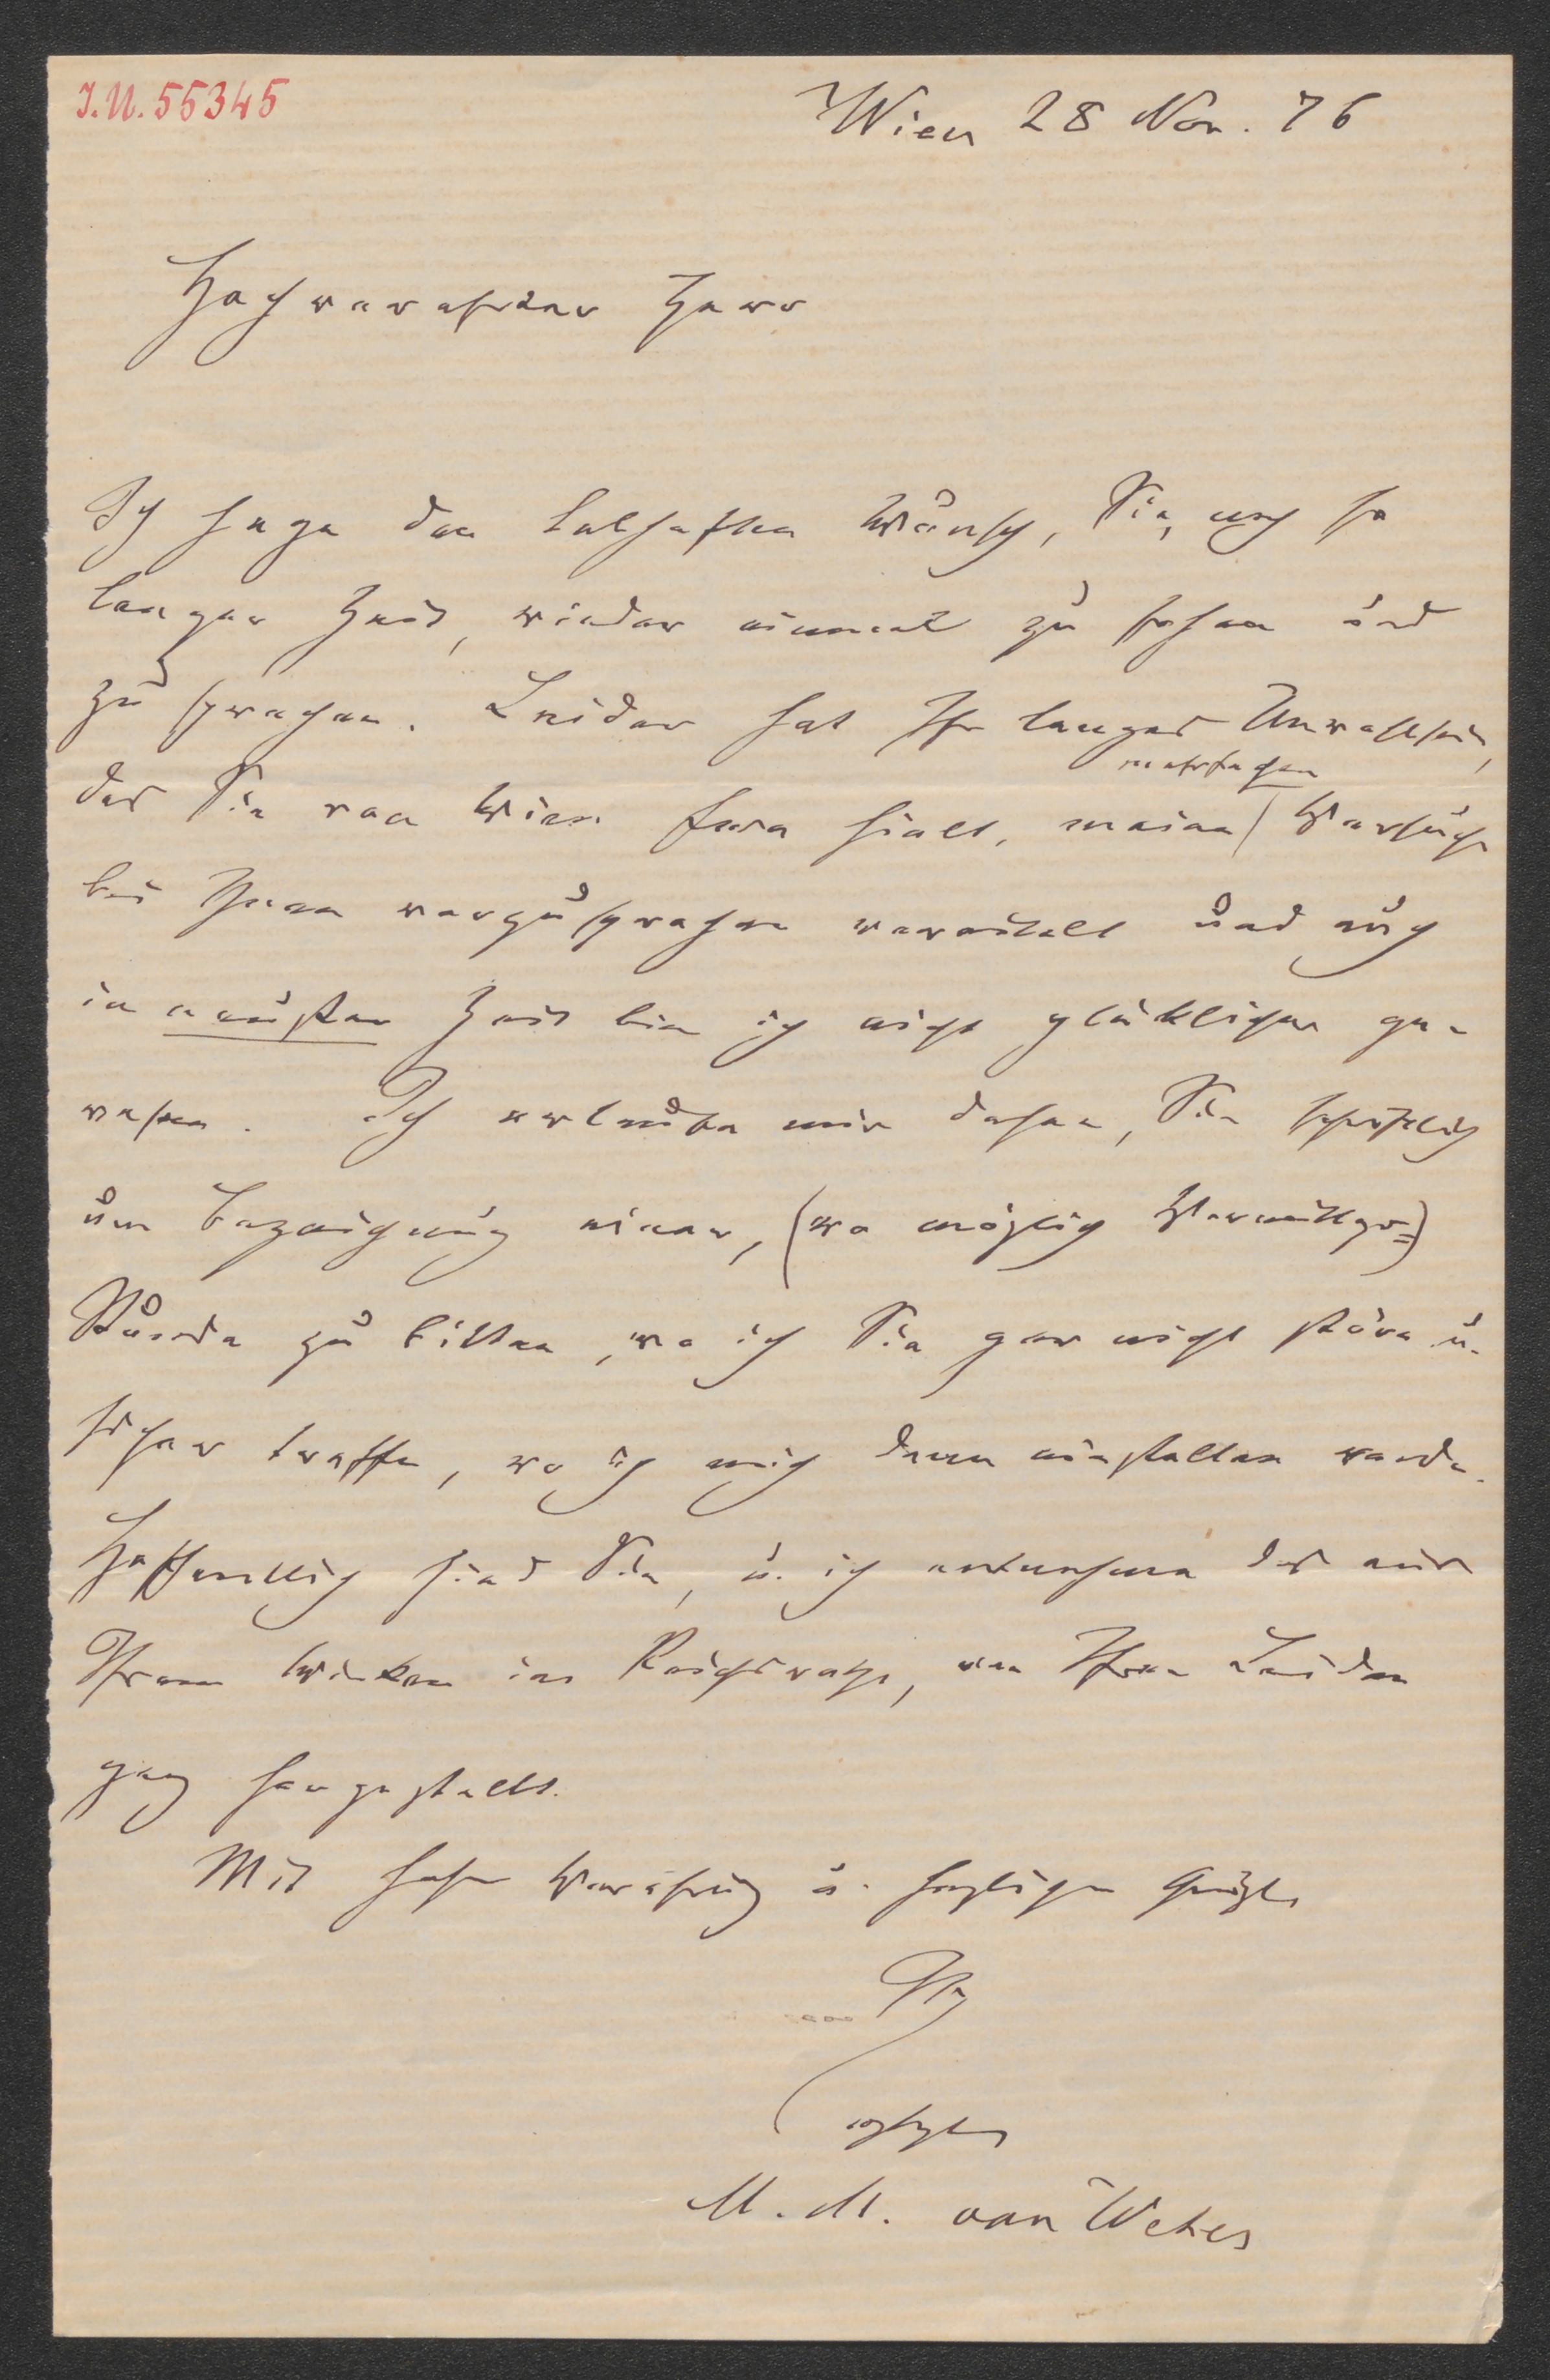 I.N. 55345
Wien 28 Nov. 76
Hochverehrter Herr
Ich hege den lebhaften Wunsch, Sie, nach so
langer Zeit, wieder einmal zu sehen und
zu sprechen. Leider hat Ihr langes Unwohlsein,
das Sie von Wien fern hielt, meine mehrfachen Versuche
bei Ihnen vorzusprechen vereitelt und auch
in neuster Zeit bin ich nicht glücklicher ge-
wesen. Ich erlaube mir daher, Sie schriftlich
um Bezeichnung einer, (wo möglich Vormittgs=)
Stunde zu bitten, wo ich Sie gar nicht störe u.
sicher treffe, wo ich mich dann einstellen werde.
Hoffentlich sind Sie, u. ich entnehme das aus
Ihrem Wirken im Reichsrathe, von Ihren Leiden
ganz hergestellt.
Mit hoher Verehrung u. herzlichem Gruße
Ihr
ergebener
M. M. von Weber